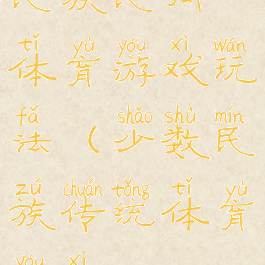 tǐ yù yóu xì wán
体育游戏玩
fǎ shǎo shù mín
法（少数民
zú chuán tǒng tǐ yù
族传统体育
yóu xì